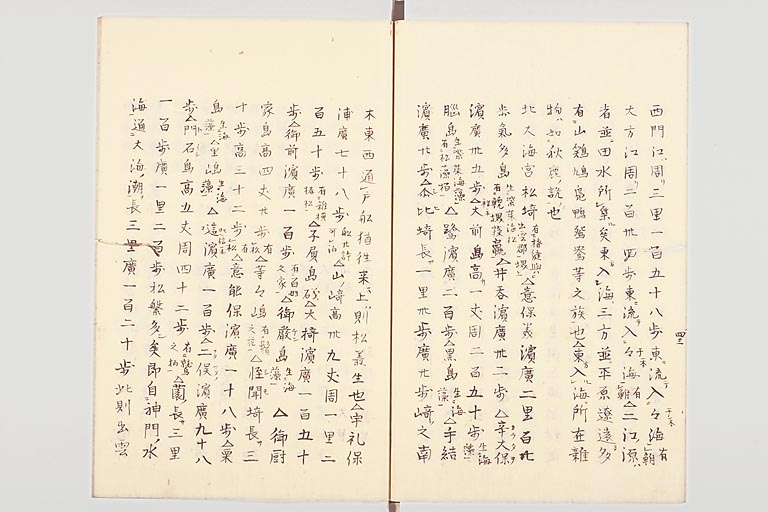 西門江周三里一百五十八歩東流入々海有鮒
大方江周二百卅四歩東流入々海有鮒二江源
者並田水所集矣東入海三方並平原遼遠多
有山鶏鳩鳬鴨鴛鴦等之族也東入海所在雜
物如秋鹿説也
北大海宮松埼有楯縫與出雲郡堺意保美濱廣二里百廿
歩氣多島生紫菜海松有鮑螺井呑濱廣卅二歩△辛大保
濱廣卅五歩△大前島高一丈周二百五十歩生海藻
腦島生紫菜海藻有松藻栢△鷺濱廣二百歩△黒島生海藻△手結
濱廣廿歩△比埼長一里廿歩廣廿歩埼之南
木東西通戸船猶往来上則松叢生也△宇礼保
浦廣七十八歩船廿許可泊△山埼高卅九丈周一里二
百五十歩有椎楠椿松△子屓島礒△大椅濱廣一百五十
歩△御前濱廣一百歩有百姓之家△御厳島生海藻△御厨
家島高四丈廿歩有松△等々島有△恠聞埼長三
十歩高三十二歩有松△意能保濱廣一十八歩△栗
島生海藻△里嶋生海藻△這濱廣一百歩△二保濱廣九十八
歩△門石島高五丈周四十二歩有鷲之栖△薗長三里
一百歩廣一里二百歩松繁多矣即自神門水
海通大海潮長三里廣一百二十歩此則出雲